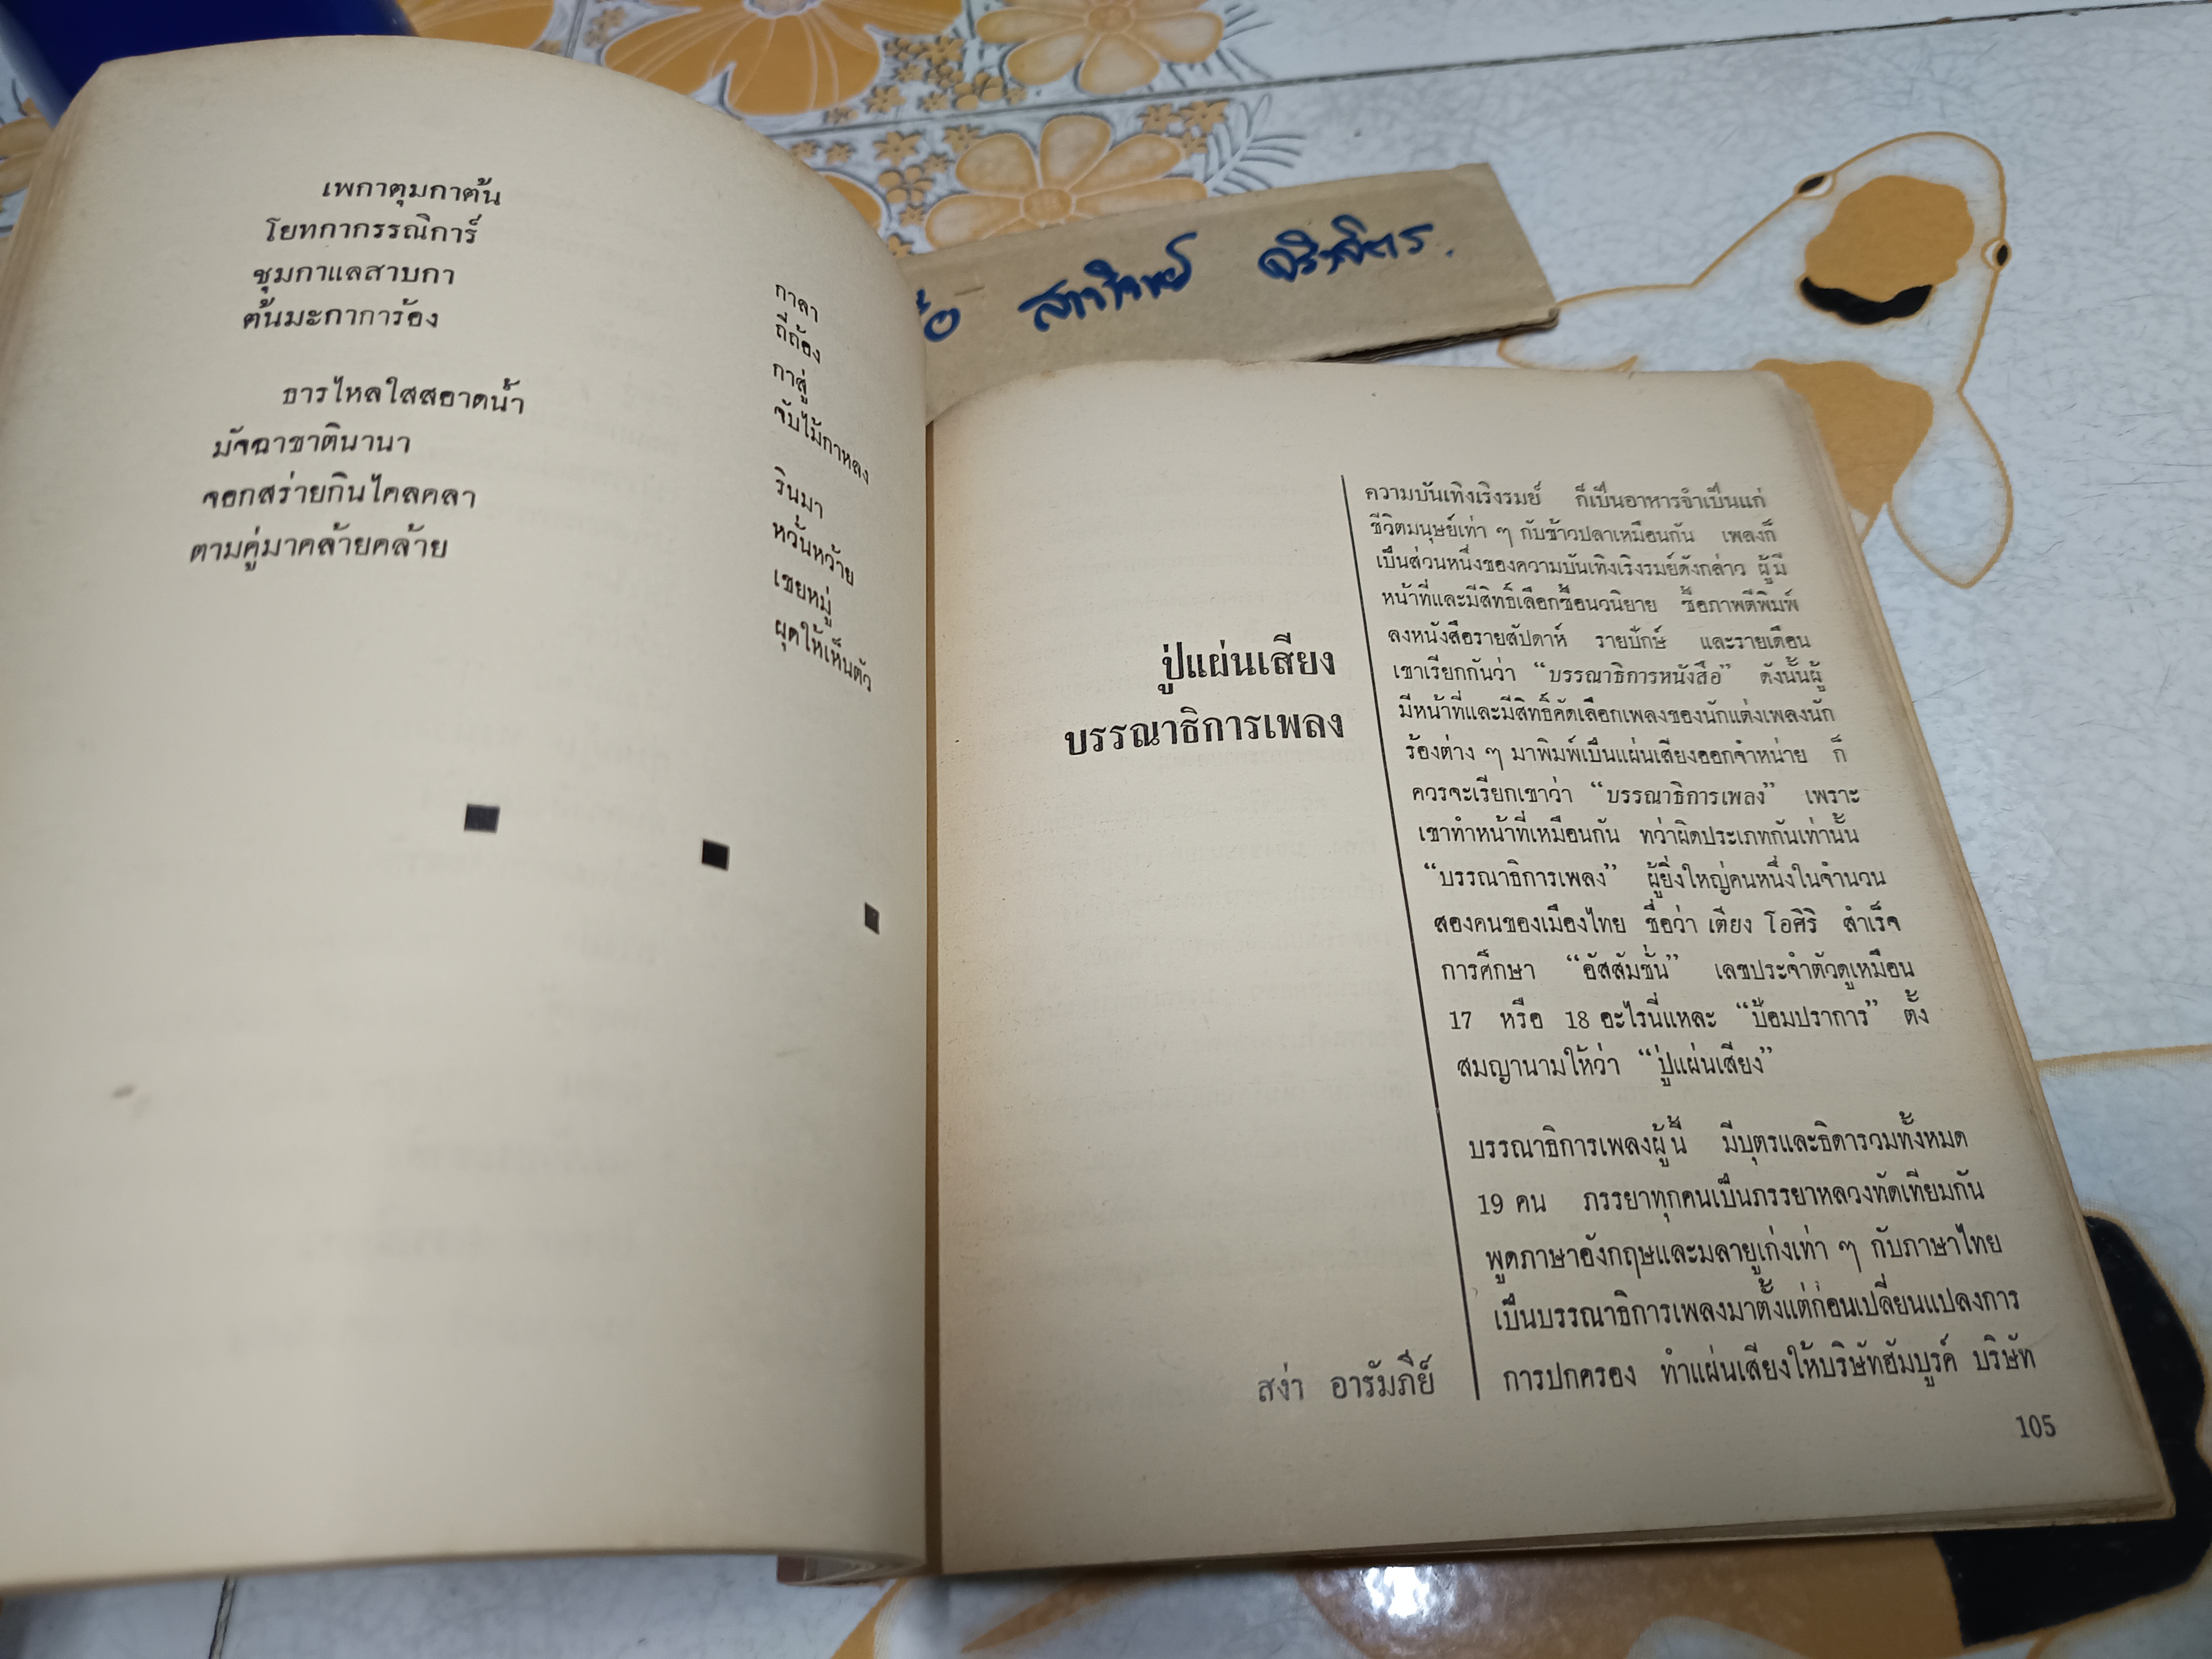 เพกาตุมกาต้น กาลา
โยทกากรรณิการ์ ถี่ถ้อง
ชุมกาแลสาบกา กาสู่
ต้นมะกาการ้อง จับไม้กาหลง
ธารไหลใสสอาดน้ำ รินมา
มัจฉาชาตินานา หวั่นหว้าย
จอกสร่ายกินไคลคลา เชยหมู่
ตามคู่มาคล้ายคล้าย ผุดให้เห็นตัว
ปู่แผ่นเสียง
บรรณาธิการเพลง
สง่า อารัมภีย์
ความบันเทิงเริงรมย์ ก็เป็นอาหารจำเป็นแก่
ชีวิตมนุษย์เท่า ๆ กับข้าวปลาเหมือนกัน เพลงก็
เป็นส่วนหนึ่งของความบันเทิงเริงรมย์ดังกล่าว ผู้มี
หน้าที่และมีสิทธิ์เลือกซื้อนวนิยาย ซื้อภาพตีพิมพ์
ลงหนังสือรายสัปดาห์ รายปักษ์ และรายเดือน
เขาเรียกกันว่า “บรรณาธิการหนังสือ” ดังนั้นผู้
มีหน้าที่และมีสิทธิ์คัดเลือกเพลงของนักแต่งเพลงนัก
ร้องต่าง ๆ มาพิมพ์เป็นแผ่นเสียงออกจำหน่าย ก็
ควรจะเรียกเขาว่า “บรรณาธิการเพลง” เพราะ
เขาทำหน้าที่เหมือนกัน ทว่าผิดประเภทกันเท่านั้น
“บรรณาธิการเพลง” ผู้ยิ่งใหญ่คนหนึ่งในจำนวน
สองคนของเมืองไทย ชื่อว่า เตียง โอศิริ สำเร็จ
การศึกษา “อัสสัมชั่น” เลขประจำตัวดูเหมือน
17 หรือ 18 อะไรนี่แหละ “ป้อมปราการ” ตั้ง
สมญานามให้ว่า “ปู่แผ่นเสียง”
บรรณาธิการเพลงผู้นี้ มีบุตรและธิดารวมทั้งหมด
19 คน ภรรยาทุกคนเป็นภรรยาหลวงทัดเทียมกัน
พูดภาษาอังกฤษและมลายูเก่งเท่า ๆ กับภาษาไทย
เป็นบรรณาธิการเพลงมาตั้งแต่ก่อนเปลี่ยนแปลงการ
การปกครอง ทำแผ่นเสียงให้บริษัทฮัมบูรค์ บริษัท
105